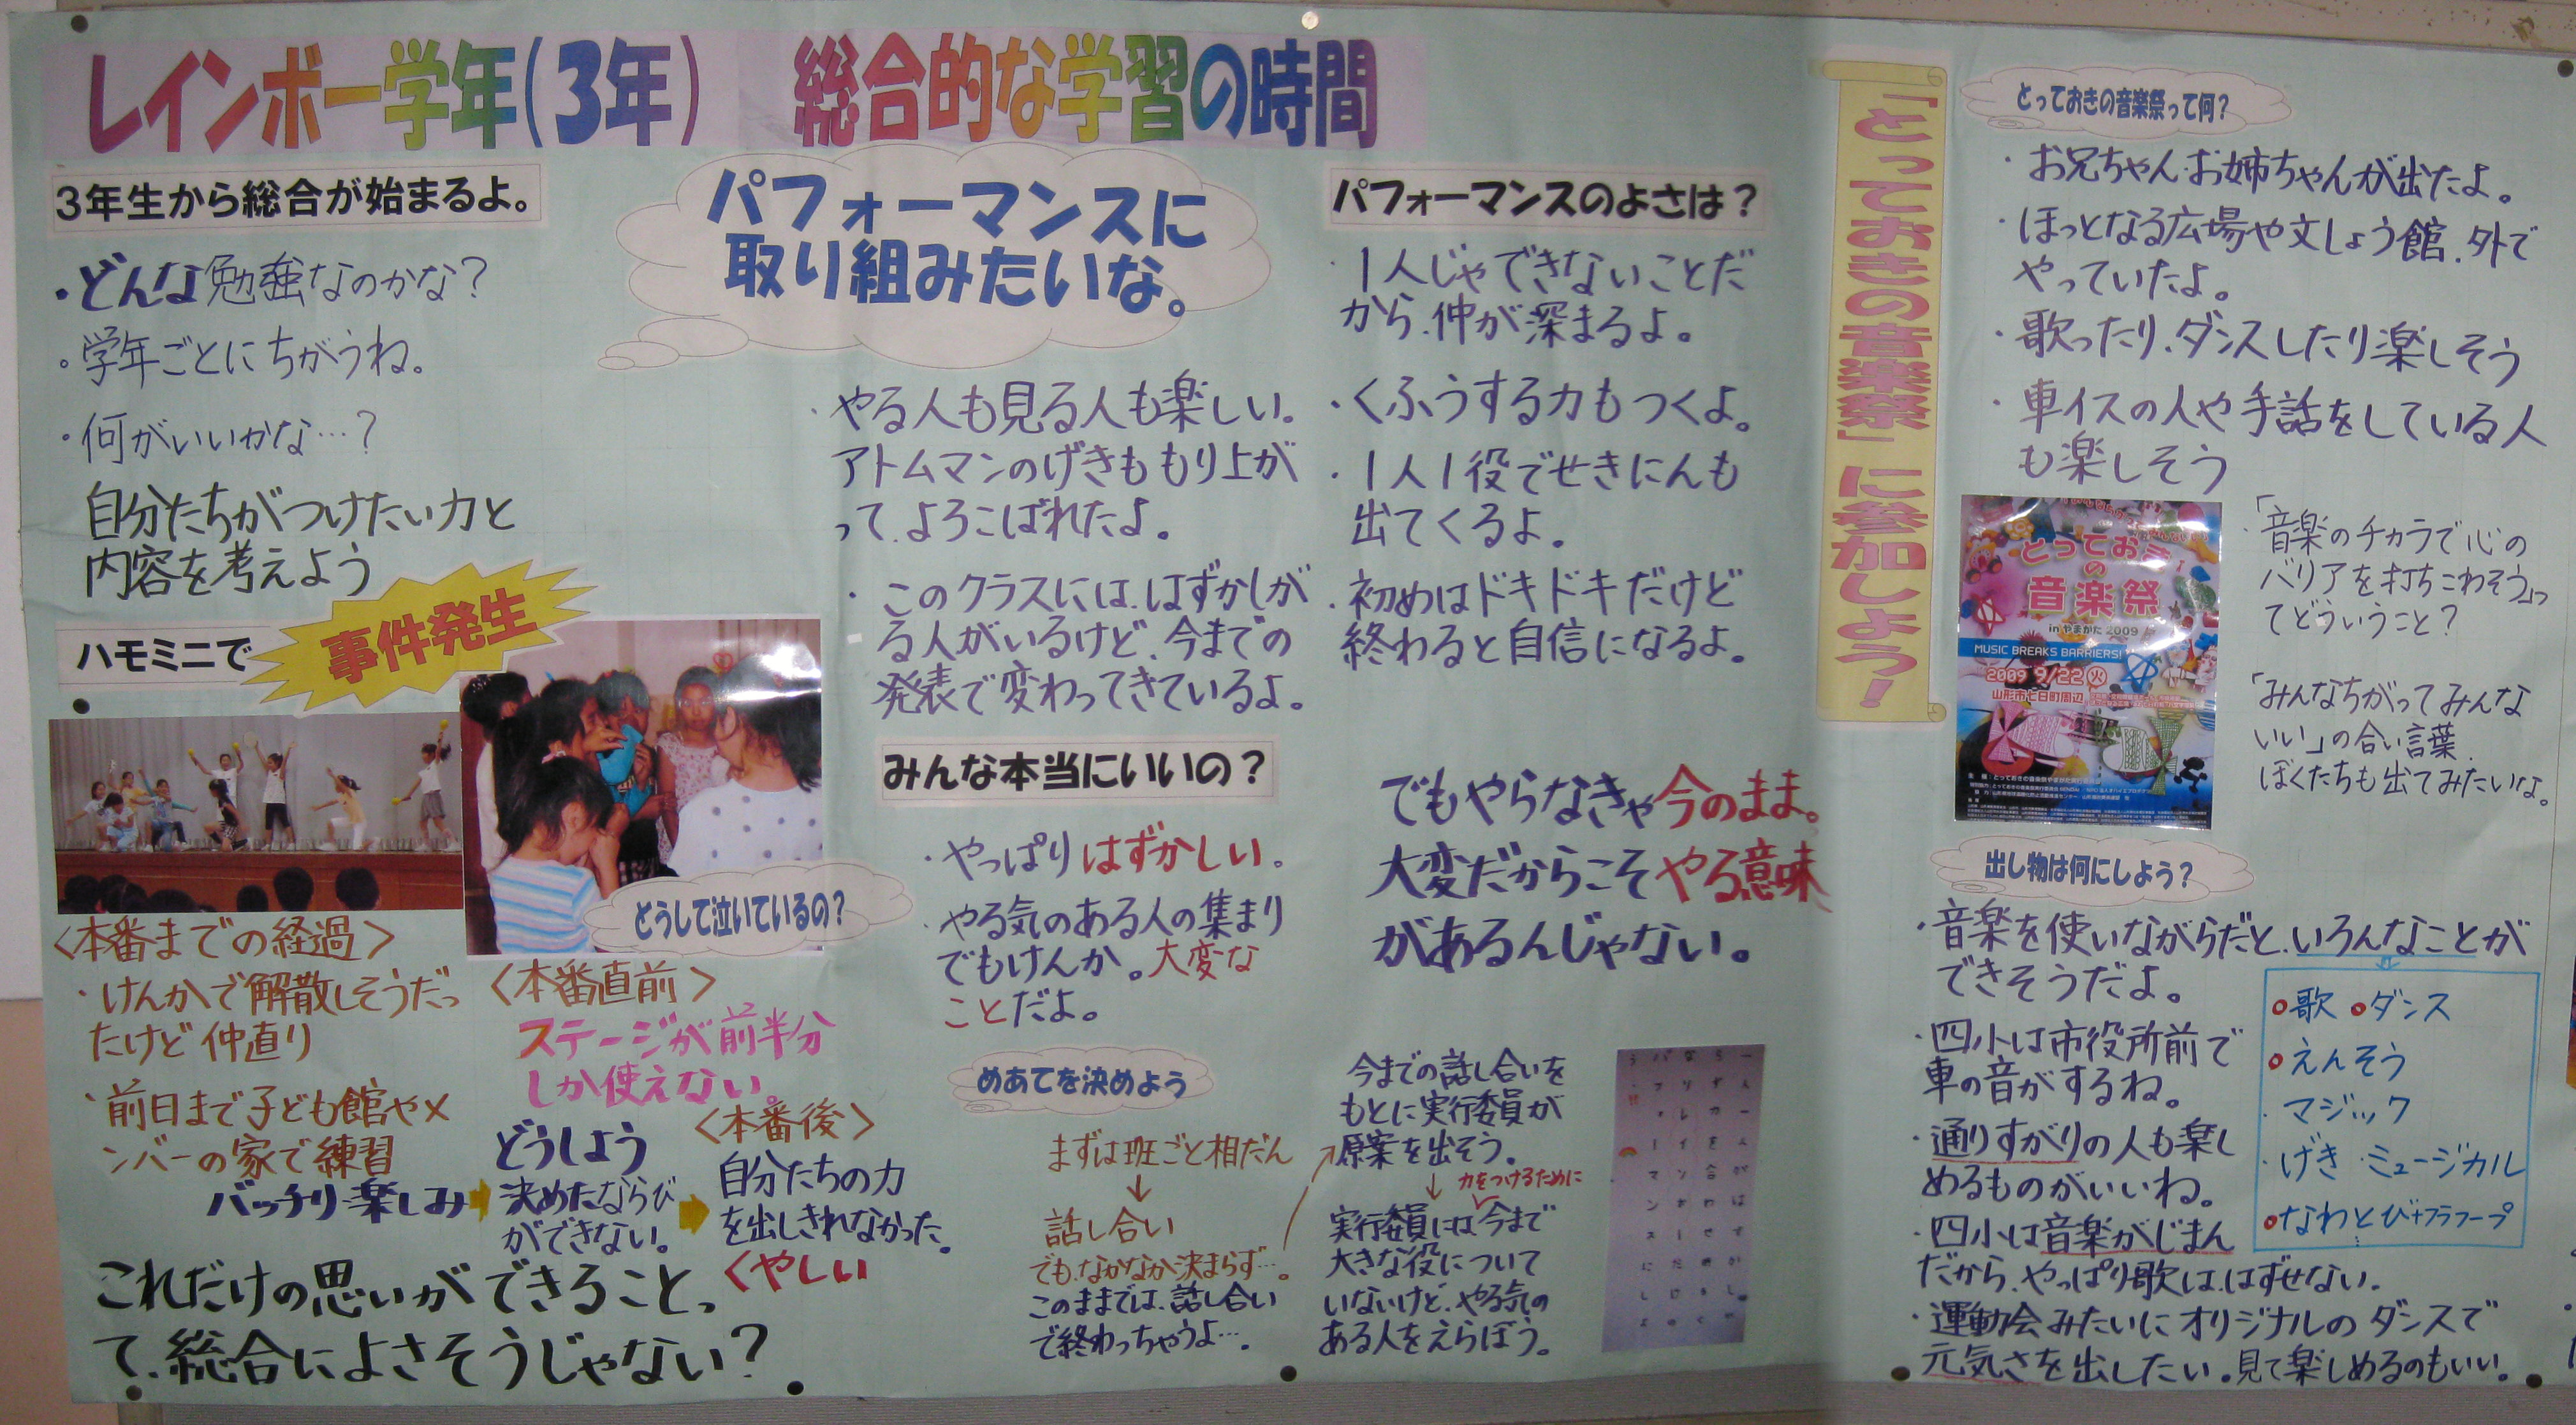 レインボー学年(3年) 総合的な学習の時間
3年生から総合が始まるよ。
・どんな勉強なのかな?
・学年ごとにちがうね。
・何がいいかな…?
自分たちがつけたい力と
内容を考えよう
ハモミニで
事件発生
どうして泣いているの?
<本番までの経過>
・けんかで解散しそうだっ
たけど仲直り
・前日まで子ども館やメ
ンバーの家で練習
バッチリ・楽しみ
<本番直前>
ステージが前半分
しか使えない。
どうしよう
決めたならび
ができない。
<本番後>
自分たちの力
を出しきれなかった。
くやしい
これだけの思いができること、っ
て、総合によさそうじゃない?
パフォーマンスに
取り組みたいな。
・やる人も見る人も楽しい。
アトムマンのげきももり上が
って、よろこばれたよ。
・このクラスには、はずかしが
る人がいるけど、今までの
発表で変わってきているよ。
みんな本当にいいの?
・やっぱりはずかしい。
・やる気のある人の集まり
でもけんか。大変な
ことだよ。
めあてを決めよう
まずは班ごと相だん
↓
話し合い
でも、なかなか決まらず…。
このままでは、話し合い
で終わっちゃうよ…。
パフォーマンスのよさは?
・1人じゃできないことだ
から、仲が深まるよ。
・くふうする力もつくよ。
・1人1役でせきにんも
出てくるよ。
・初めはドキドキだけど
終わると自信になるよ。
でもやらなきゃ今のまま。
大変だからこそやる意味
があるんじゃない。
今までの話し合いを
もとに実行委員が
原案を出そう。
↓ 力をつけるために
実行委員には、今まで
大きな役について
いないけど、やる気の
ある人をえらぼう。
「とっておきの音楽祭」に参加しよう!
とっておきの音楽祭って何?
・お兄ちゃん・お姉ちゃんが出たよ。
・ほっとなる広場や文しょう館、外で
やっていたよ。
・歌ったり、ダンスしたり楽しそう
・車イスの人や手話をしている人
も楽しそう
とっておき
の
音楽祭
in やまがた 2009
MUSIC BREAKS BARRIERS!
2009 9/22 火
山形市七日町周辺
・「音楽のチカラで心の
バリアを打ちこわそう」っ
てどういうこと?
「みんなちがってみんな
いい」の合い言葉、
ぼくたちも出てみたいな。
出し物は何にしよう?
・音楽を使いながらだと、いろんなことが
できそうだよ。
・四小は市役所前で
車の音がするね。
・通りすがりの人も楽し
めるものがいいね。
・四小は音楽がじまん
だから、やっぱり歌は、はずせない。
・運動会みたいにオリジナルのダンスで
元気さを出したい。見て楽しめるのもいい。
○歌 ○ダンス
○えんそう
・マジック
・げき・ミュージカル
○なわとび+フラフープ